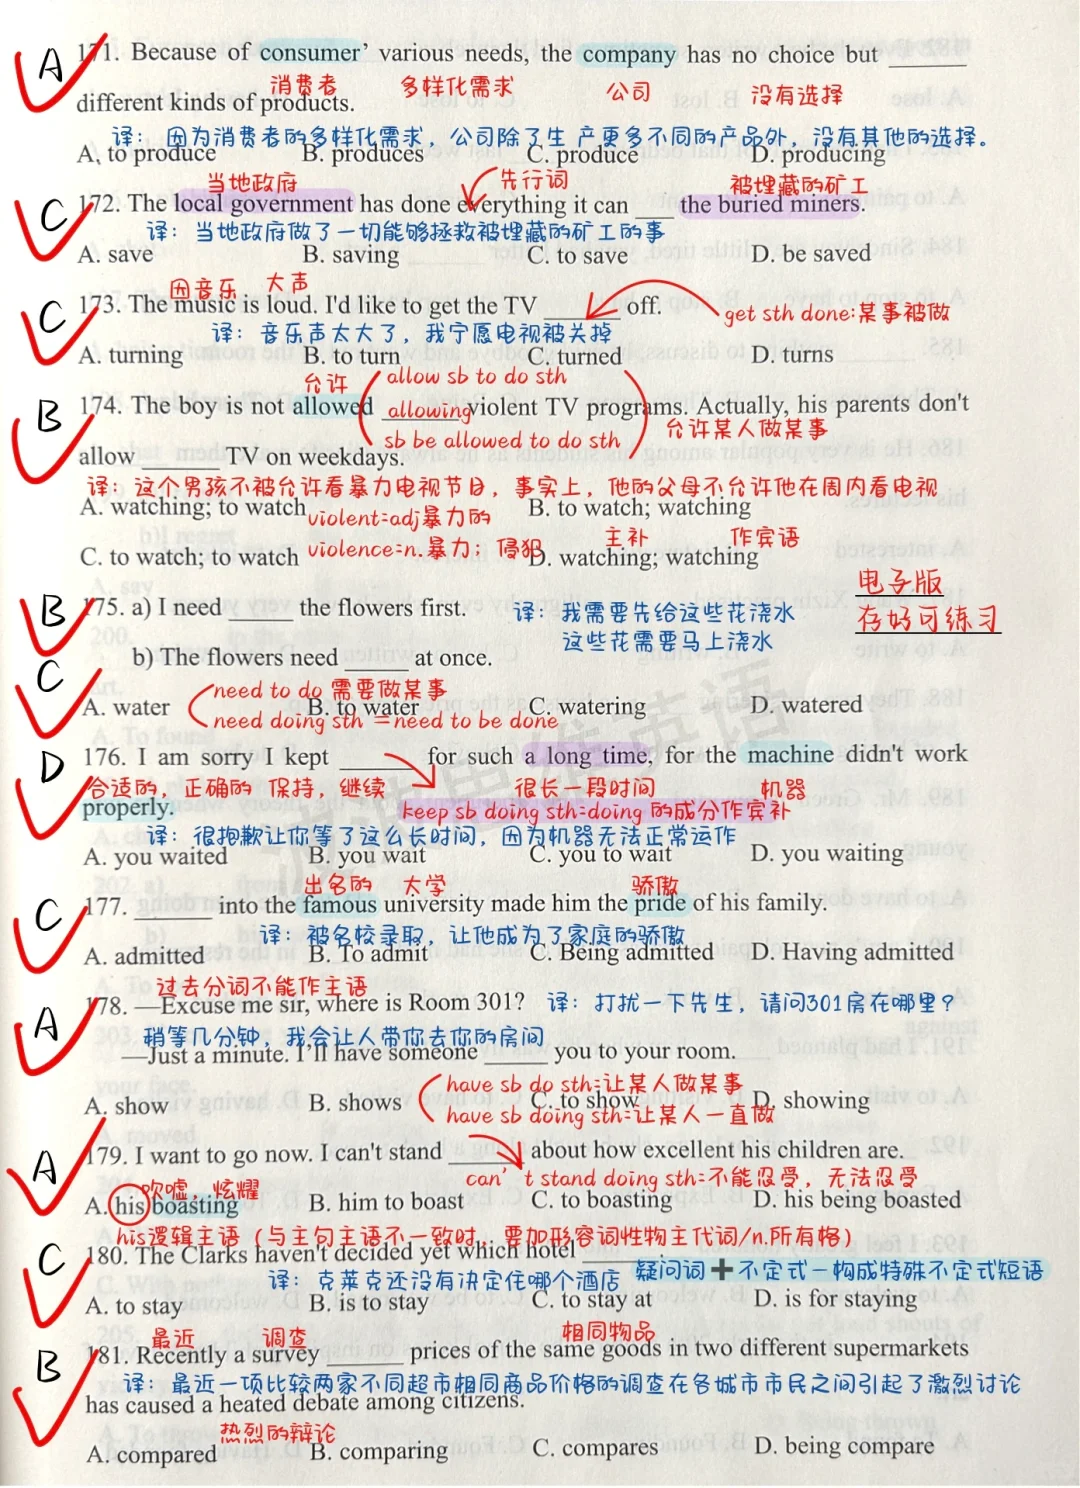 A 171. Because of consumer’ various needs, the company has no choice but ______
消费者 多样化需求 公司 没有选择
different kinds of products.
译：因为消费者的多样化需求，公司除了生产更多不同的产品外，没有其他的选择。
A, to produce B. produces C. produce D. producing
当地政府 先行词 被埋藏的矿工
C 172. The local government has done everything it can ___ the buried miners.
译：当地政府做了一切能够拯救被埋藏的矿工的事
A. save B. saving C. to save D. be saved
因音乐 大声
C 173. The music is loud. I'd like to get the TV ______ off.
get sth done:某事被做
译：音乐声太大了，我宁愿电视被关掉
A. turning B. to turn C. turned D. turns
允许 allow sb to do sth
B 174. The boy is not allowed ______ violent TV programs. Actually, his parents don't
allowing
sb be allowed to do sth 允许某人做某事
allow ______ TV on weekdays.
译：这个男孩不被允许看暴力电视节目，事实上，他的父母不允许他在周内看电视
A. watching; to watch B. to watch; watching
violent=adj暴力的
主补 作宾语
C. to watch; to watch D. watching; watching
violence=n.暴力；侵犯
电子版
存好可练习
B 175. a) I need _____ the flowers first.
译：我需要先给这些花浇水
这些花需要马上浇水
C b) The flowers need _____ at once.
need to do 需要做某事
A. water B. to water C. watering D. watered
need doing sth =need to be done
D 176. I am sorry I kept ______ for such a long time, for the machine didn't work
合适的，正确的 保持，继续 很长一段时间 机器
properly.
keep sb doing sth=doing 的成分作宾补
译：很抱歉让你等了这么长时间，因为机器无法正常运作
A. you waited B. you wait C. you to wait D. you waiting
出名的 大学 骄傲
C 177. ______ into the famous university made him the pride of his family.
译：被名校录取，让他成为了家庭的骄傲
A. admitted B. To admit C. Being admitted D. Having admitted
过去分词不能作主语
A 178. —Excuse me sir, where is Room 301?
译：打扰一下先生，请问301房在哪里？
稍等几分钟，我会让人带你去你的房间
—Just a minute. I’ll have someone _____ you to your room.
have sb do sth=让某人做某事
A. show B. shows C. to show D. showing
have sb doing sth=让某人一直做
A 179. I want to go now. I can't stand ______ about how excellent his children are.
can’t stand doing sth=不能忍受，无法忍受
吹嘘，炫耀
A. his boasting B. him to boast C. to boasting D. his being boasted
his逻辑主语（与主句主语不一致时，要加形容词性物主代词/n.所有格）
C 180. The Clarks haven't decided yet which hotel ______.
疑问词＋不定式－构成特殊不定式短语
译：克莱克还没有决定住哪个酒店
A. to stay B. is to stay C. to stay at D. is for staying
最近 调查 相同物品
B 181. Recently a survey ______ prices of the same goods in two different supermarkets
译：最近一项比较两家不同超市相同商品价格的调查在各城市市民之间引起了激烈讨论
has caused a heated debate among citizens.
热烈的辩论
A. compared B. comparing C. compares D. being compare